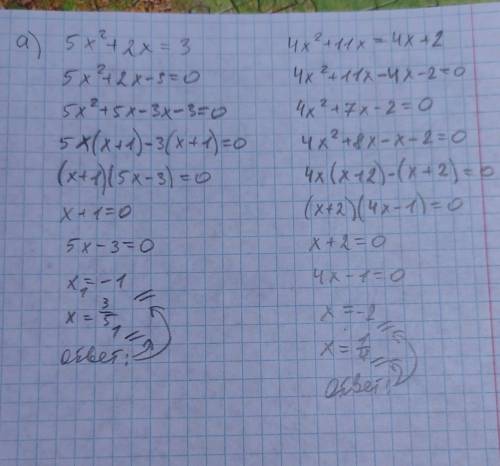 а) 5x²+2x=3
5x²+2x-3=0
5x²+5x-3x-3=0
5x(x+1)-3(x+1)=0
(x+1)(5x-3)=0
x+1=0
5x-3=0
x₁=-1
x=3/5
ответ:
4x²+11x=4x+2
4x²+11x-4x-2=0
4x²+7x-2=0
4x²+8x-x-2=0
4x(x+2)-(x+2)=0
(x+2)(4x-1)=0
x+2=0
4x-1=0
x=-2
x=1/4
ответ: